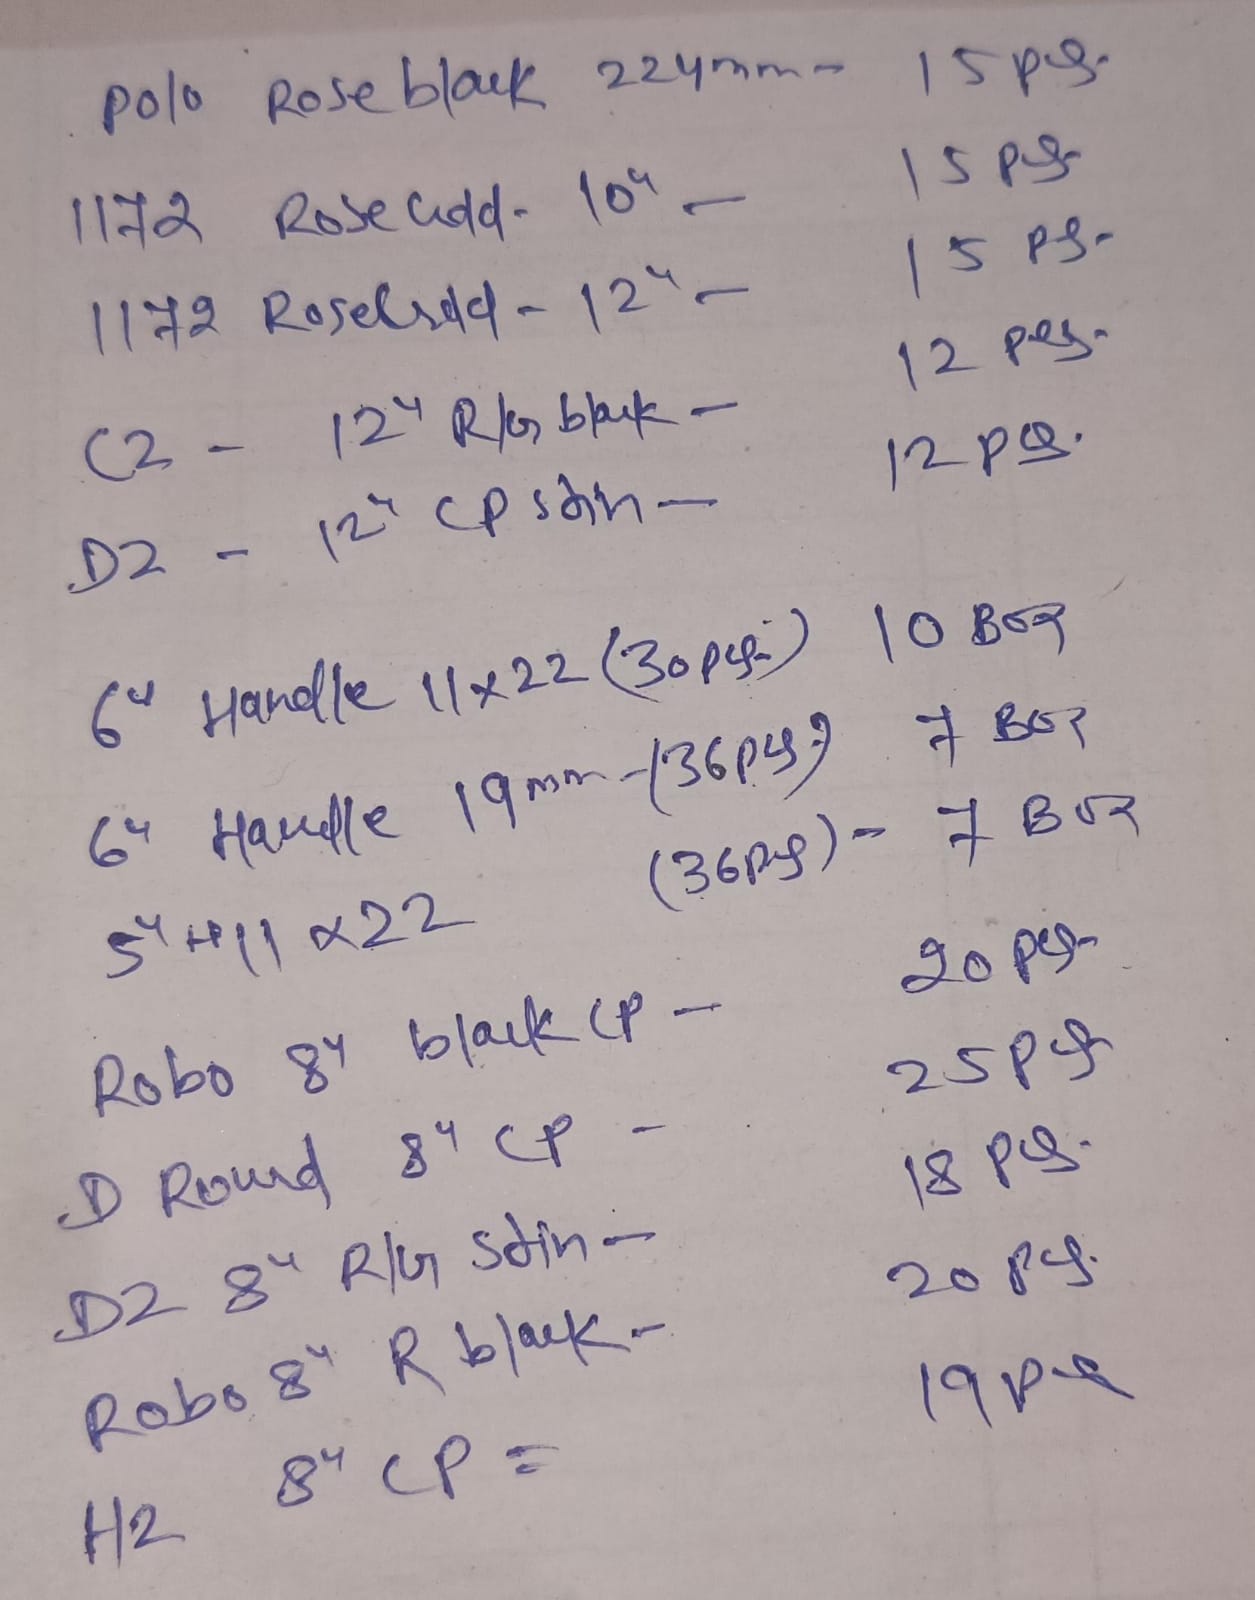 Polo Rose black 224mm - 15 pcs.
1172 Rose Gold - 10" - 15 pcs
1172 Rose Gold - 12" - 15 ps.
C2 - 12" R/G black - 12 pcs.
D2 - 12" CP stin - 12 pcs.
6" Handle 11x22 (30 pcs.) 10 Box
6" Handle 19mm - (36 pcs.) 7 Box
5" H 11 x 22 (36 pcs) - 7 Box
Robo 8" black CP - 20 pcs
D Round 8" CP - 25 pcs
D2 8" R/G stin - 18 pcs.
Robo 8" R black - 20 pcs.
H2 8" CP = 19 pcs